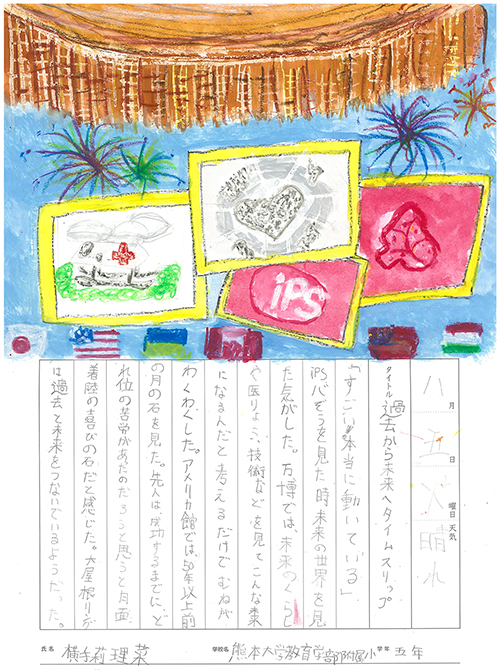 iPS
八月五日火曜日 天気 晴れ
タイトル 過去から未来へタイムスリップ
「すごい。本当に動いている」
iPS心ぞうを見た時未来の世界を見
た気がした。万博では、未来のくらし
や医りょう、技術などを見てこんな
になるんだと考えるだけでむねが
わくわくした。アメリカ館では、50年以上前
の月の石を見た。先人は、成功するまでに、ど
れ位の苦労があったのだろうと思うと月面
着陸の喜びの石だと感じた。大屋根リング
は過去と未来をつないでいるようだった。
氏名 横手莉理菜 学校名 熊本大学教育学部附属小 学年 五年